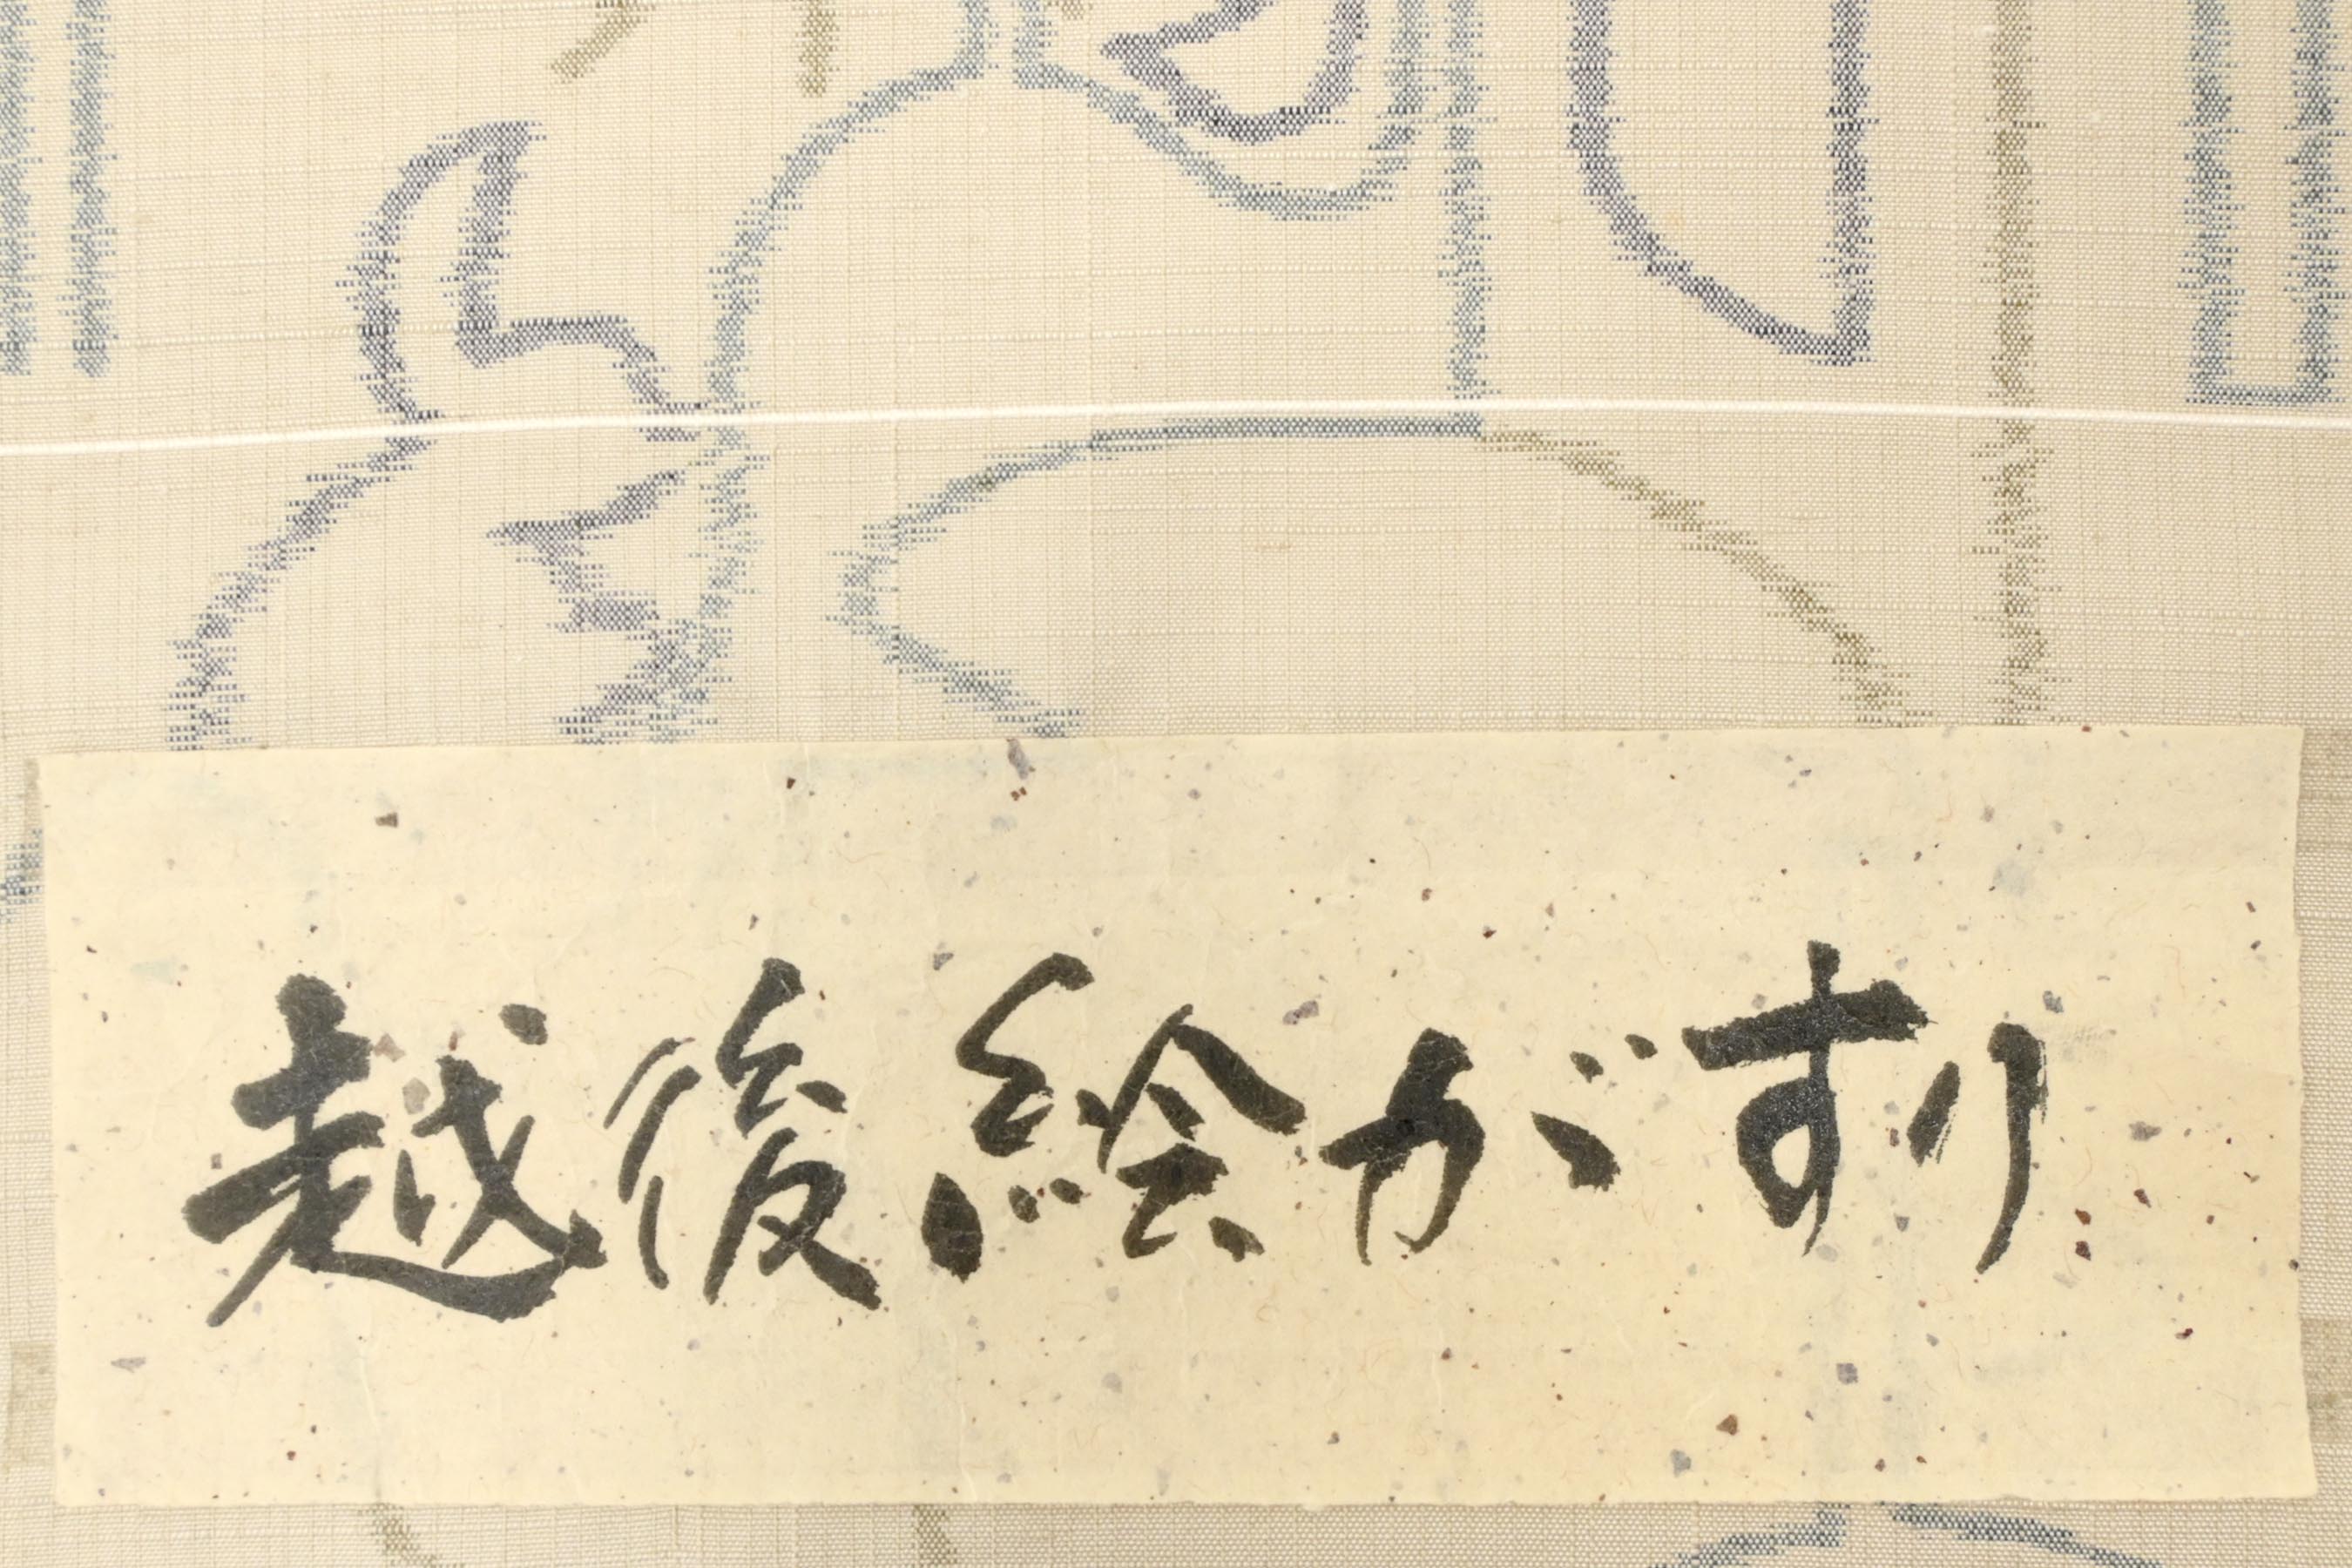 越後絵がすり